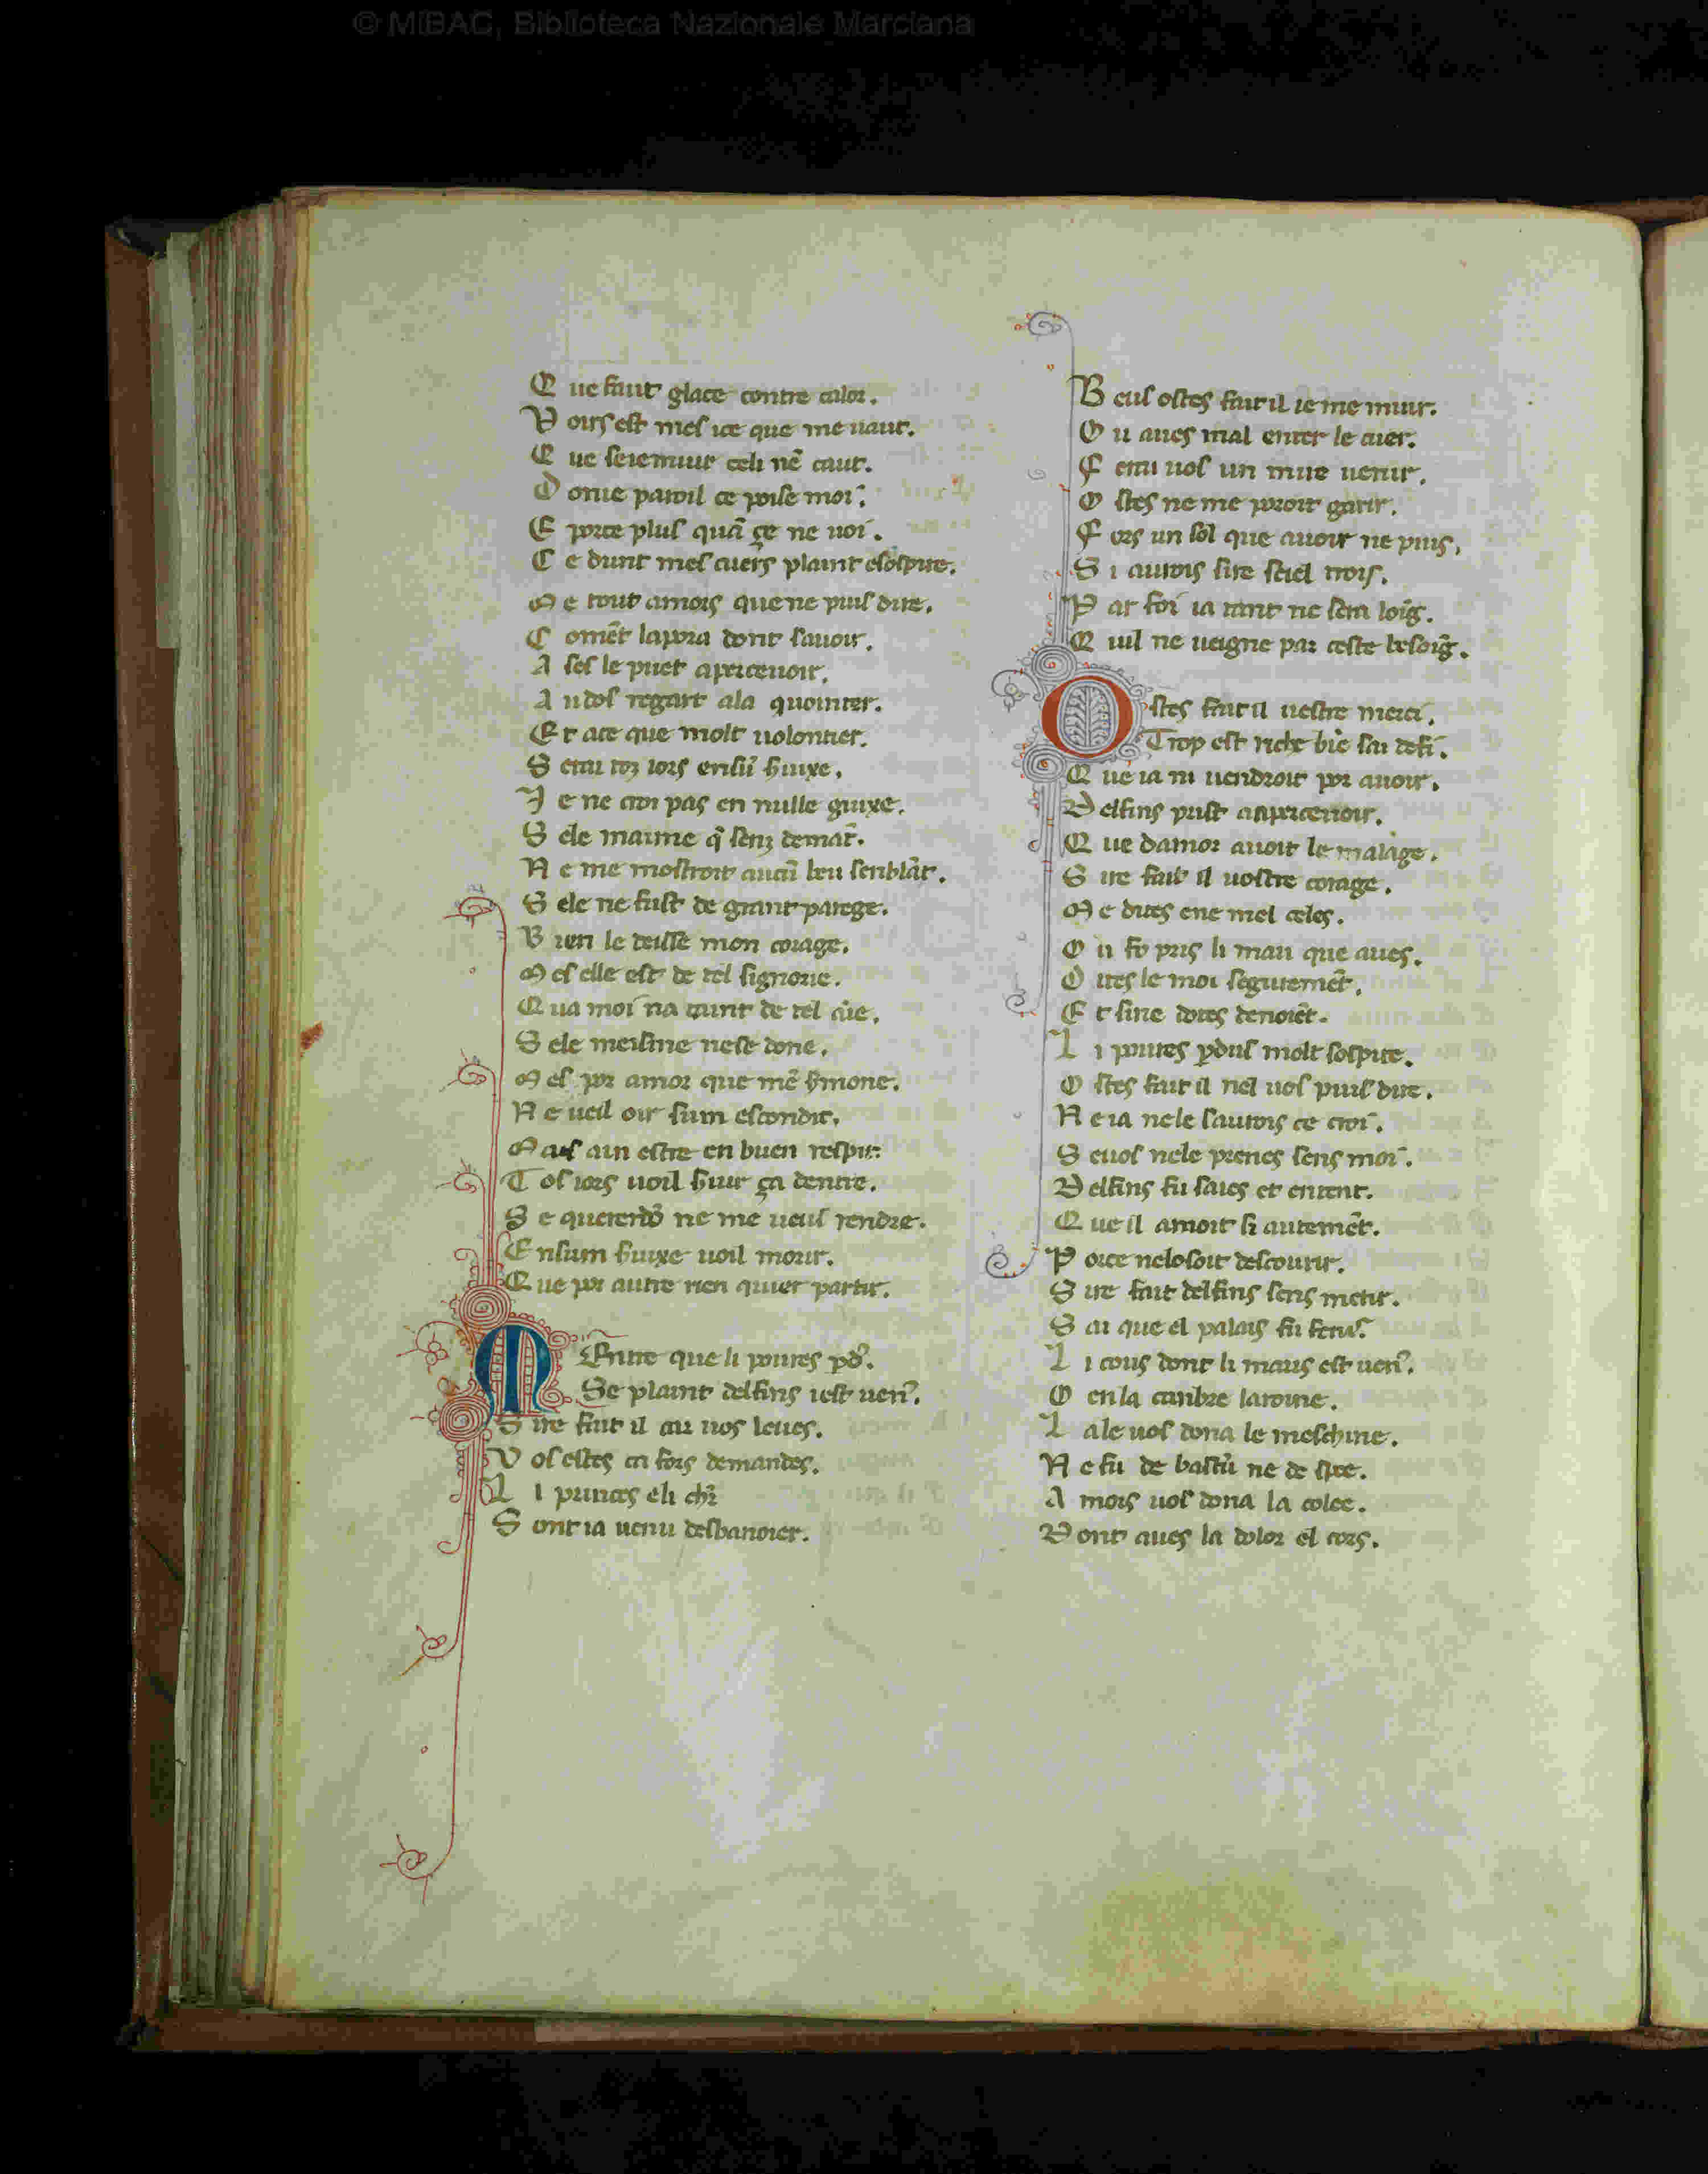 © MiBAC, Biblioteca Nazionale Marciana
Q ue faut glace contre calor.
V oirs est mes ice que me uaut.
Q ue seiemuir celi nẽ caut.
D onie paroil ce poise moi.
E porce plus quã çe ne uoi.
C e dunt mes cuers plaint esospire.
M e tout amors que ne puis dire.
C omẽt lapora dont sauoir.
A ses le puet aperceuoir.
A udos regart ala quointer.
E t ace que molt uolontier.
S erai toz iors ensũ seruixe.
J e ne croi pas en nulle guixe.
S ele maime q̃ senz demãt.
N e me mostroit aucũ beu senblãt.
S ele ne fust de grant parege.
B ien le deisse mon corage.
M es elle est de tel signorie.
Q ua moi na cunt de tel aĩe.
S ele meisme nese done.
M es por amor que mẽ semone.
N e ueil oir sum escondit.
M ais ain estre en buen respit.
T os iors uoil seruir ça dentre.
S e querendõ ne me ueul rendre.
E nsum seruixe uoil morir.
Q ue por autre rien quier partir.
M Entre que li poures pdꝰ.
Se plaint delfins iest uenꝰ.
S ire fait il car uos leues.
V os estes ca fors demandes.
L i princes eli chr̃
S ont ia uenu desbanoier.
B eus ostes fait il ie me muir.
O u aues mal enter le cuer.
F erai uos un mire uenir.
O stes ne me poroit garir.
F ors un sol que auoir ne puis.
S i aurois sire seiel trois.
P ar foi ia tant ne sera loĩg.
Q uil ne ueigne par ceste besoĩg.
O stes fait il uestre merci.
Trop est riche biẽ sai defi.
Q ue ia ni uendroit por auoir.
D elfins prist aapriceuoir.
Q ue damor auoit le malage.
S ire fait il uostre corage.
M e dites ene mel celes.
O u fo pris li mau que aues.
D ites le moi seguremẽt.
E t sine dotes denoiẽt.
L i poures pdus molt sospire.
O stes fait il nel uos puis dire.
N e ia nele saurois ce croi.
S euos nele prenes sens moi.
D elfins fu saies et entent.
Q ue il amoit si autemẽt.
P orce nelosoit descourir.
S ire fait delfins sens mentir.
S ai que el palais fu feruꝰ.
L i cous dont li maus est uenꝰ.
O en la canbre laroine.
L ale uos dona le meschine.
N e fu de bastũ ne de spee.
A mors uos dona la colee.
D ont aues la dolor el cors.